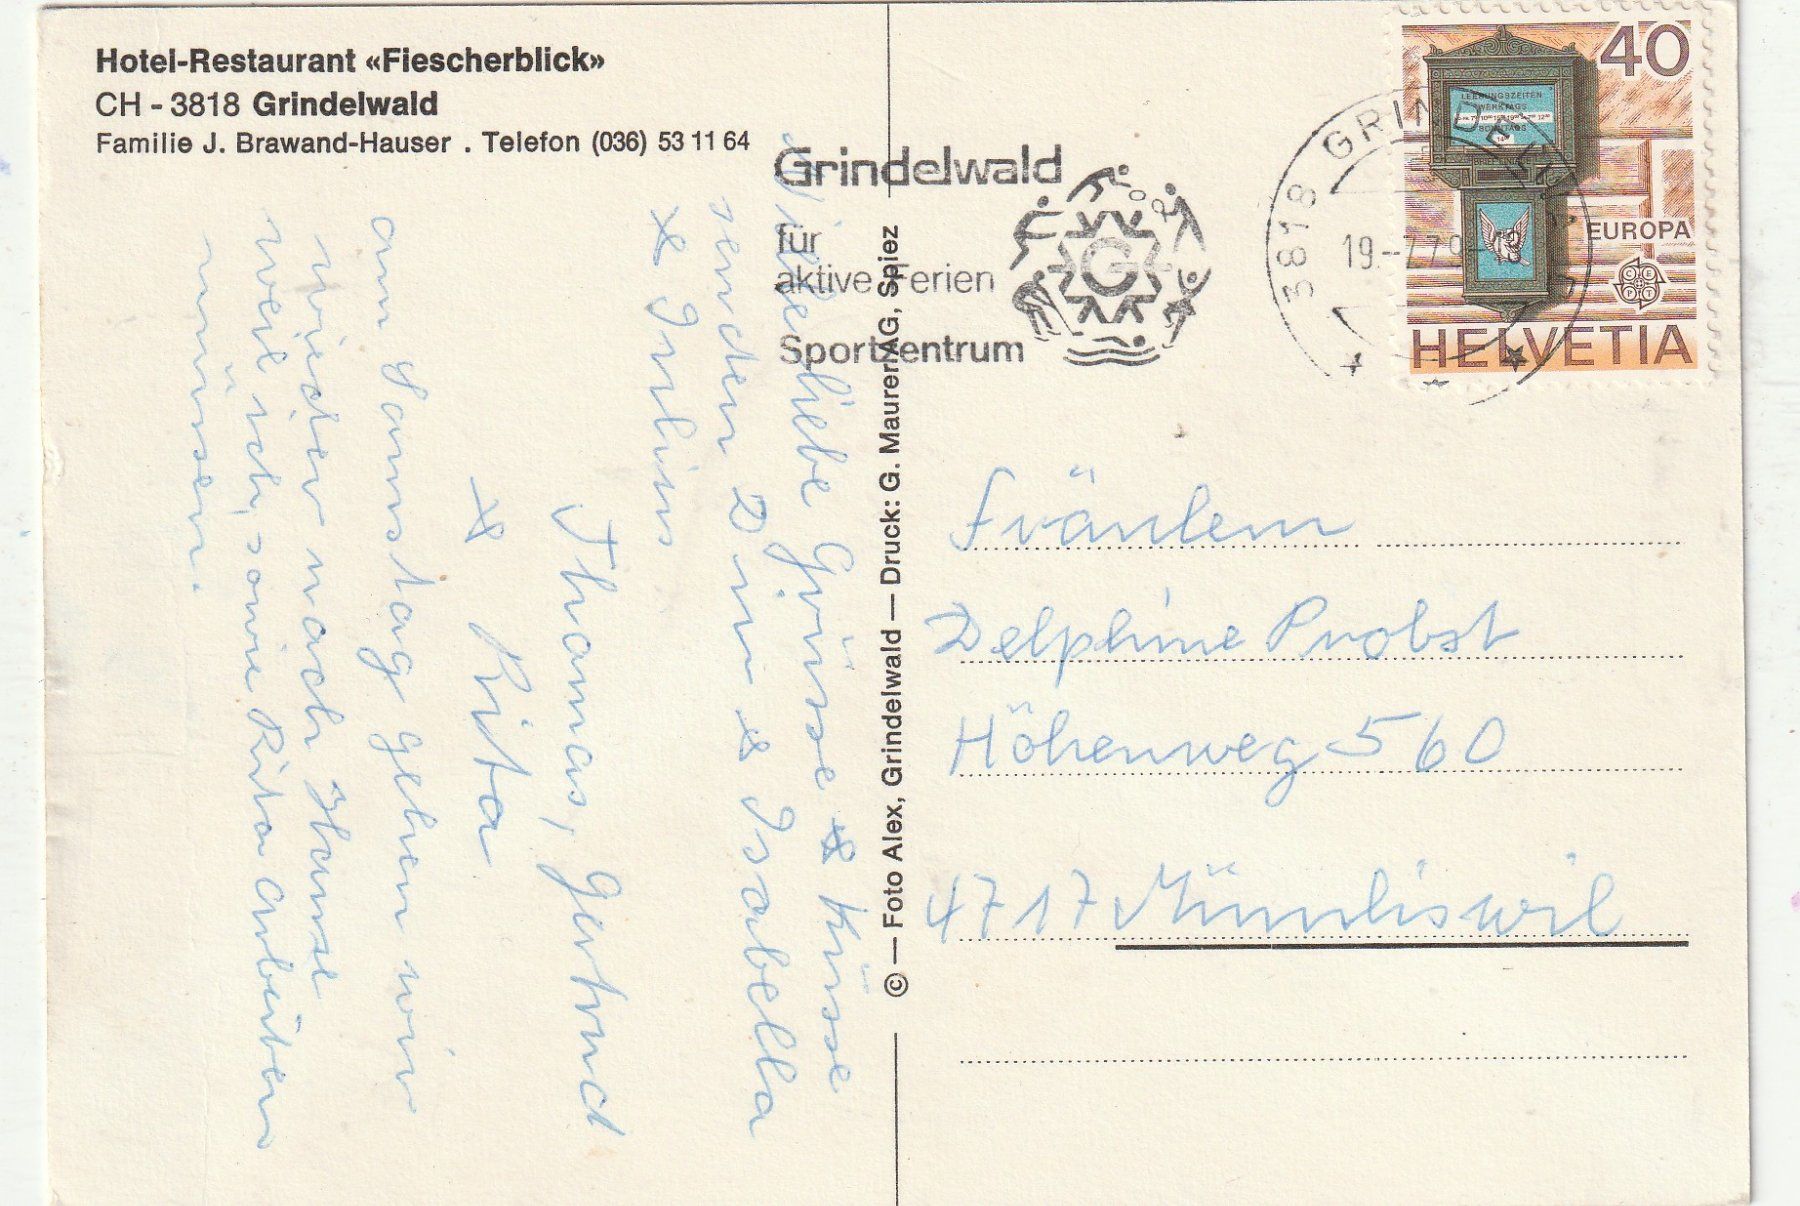 Hotel-Restaurant «Fiescherblick»
CH - 3818 Grindelwald
Familie J. Brawand-Hauser . Telefon (036) 53 11 64
Grindelwald
für
aktive Ferien
Sportzentrum
G
3818 GRINDELWALD
19.-7.79-18
40
LEERUNGSZEITEN
WERKTAGS
SONNTAGS
EUROPA
CEPT
HELVETIA
Viele liebe Grüsse & Küsse
senden Dir & Isabella
& Julius
Thomas, Gertrud
& Rita
am Samstag gehen wir
wieder nach Hause
weil ich, sowie Rita arbeiten
müssen.
© — Foto Alex, Grindelwald — Druck: G. Maurer AG, Spiez
Fräulein
Delphine Probst
Höhenweg 560
4717 Mümliswil